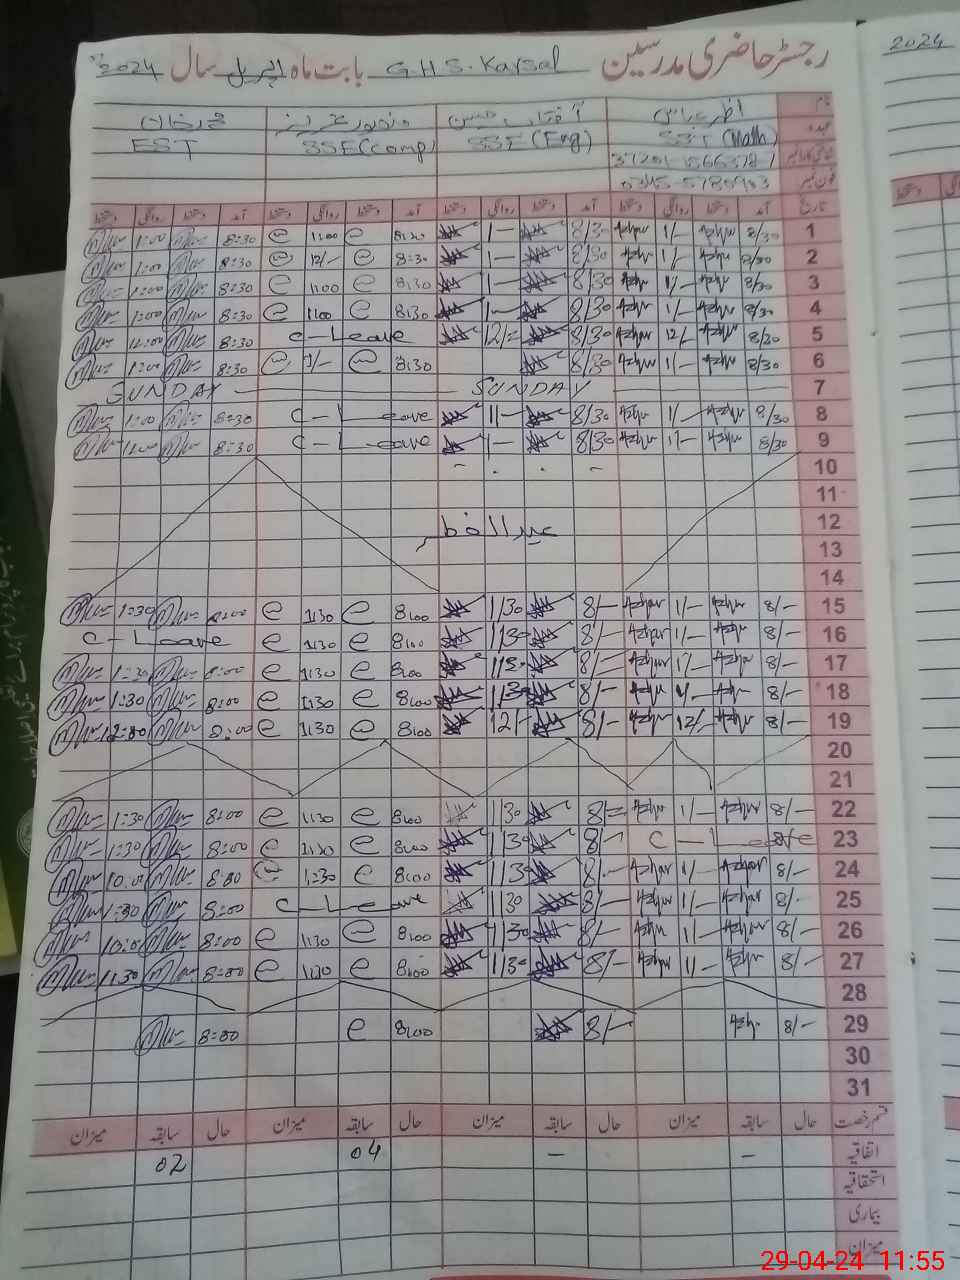 رجسٹر حاضری مدرسین G.H.S. Kaysal بابت ماہ اپریل سال 2024
2024
نام اظہر عباس آفتاب حسین
عہدہ SST (Math) SSE (Eng) SSE (comp) EST
شناختی کارڈ نمبر
فون نمبر
تاریخ آمد دستخط روانگی دستخط آمد دستخط روانگی دستخط آمد دستخط روانگی دستخط آمد دستخط روانگی دستخط
1 8/30 Azhar 1/- Azhar 8/30 1- 8:30 e 1:00 e 8:30 1:00
2 8/30 Azhar 1/- Azhar 8/30 1- 8:30 e 12/- e 8:30 1:00
3 8/30 Azhar 1/- Azhar 8/30 1- 8:30 e 1:00 e 8:30 1:00
4 8/30 Azhar 1/- Azhar 8/30 1- 8:30 e 1:00 e 8:30 1:00
5 8/30 Azhar 12/- Azhar 8/30 12/= C-Leave 8:30 12:00
6 8/30 Azhar 1/- Azhar 8/30 8:30 e 1/- e 8:30 1:00
7 SUNDAY SUNDAY
8 8/30 Azhar 1/- Azhar 8/30 1- C-Leave 8:30 1:00
9 8/30 Azhar 1- Azhar 8/30 1- C-Leave 8:30 1:00
10
11
12 عید الفطر
13
14
15 8/- Azhar 1/- Azhar 8/- 1/30 8:00 e 1:30 e 8:00 1:30
16 8/- Azhar 1/- Azhar 8/- 1/30 8:00 e 1:30 e C-Leave
17 8/- Azhar 1/- Azhar 8/- 1/30 8:00 e 1:30 e 8:00 1:30
18 8/- Azhar 1/- Azhar 8/- 1/30 8:00 e 1:30 e 8:00 1:30
19 8/- Azhar 12/- Azhar 8/- 12/- 8:00 e 1:30 e 8:00 12:00
20
21
22 8/- Azhar 1/- Azhar 8/= 1/30 8:00 e 1:30 e 8:00 1:30
23 C-Leave 8/- 1/30 8:00 e 1:30 e 8:00 1:30
24 8/- Azhar 1/- Azhar 8/- 1/30 8:00 e 1:30 e 8:00 10:00
25 8/- Azhar 1/- Azhar 8/- 1/30 C-Leave 8:00 1:30
26 8/- Azhar 1/- Azhar 8/- 1/30 8:00 e 1:30 e 8:00 10:00
27 8/- Azhar 1/- Azhar 8/- 1/30 8:00 e 1:30 e 8:00 1:30
28
29 8/- Azh. 8/- 8:00 e 8:00
30
31
قسم رخصت حال سابقہ میزان حال سابقہ میزان حال سابقہ میزان حال سابقہ میزان
اتفاقیہ - - 04 02
استحقاقیہ
بیماری
میزان
29-04-24 11:55